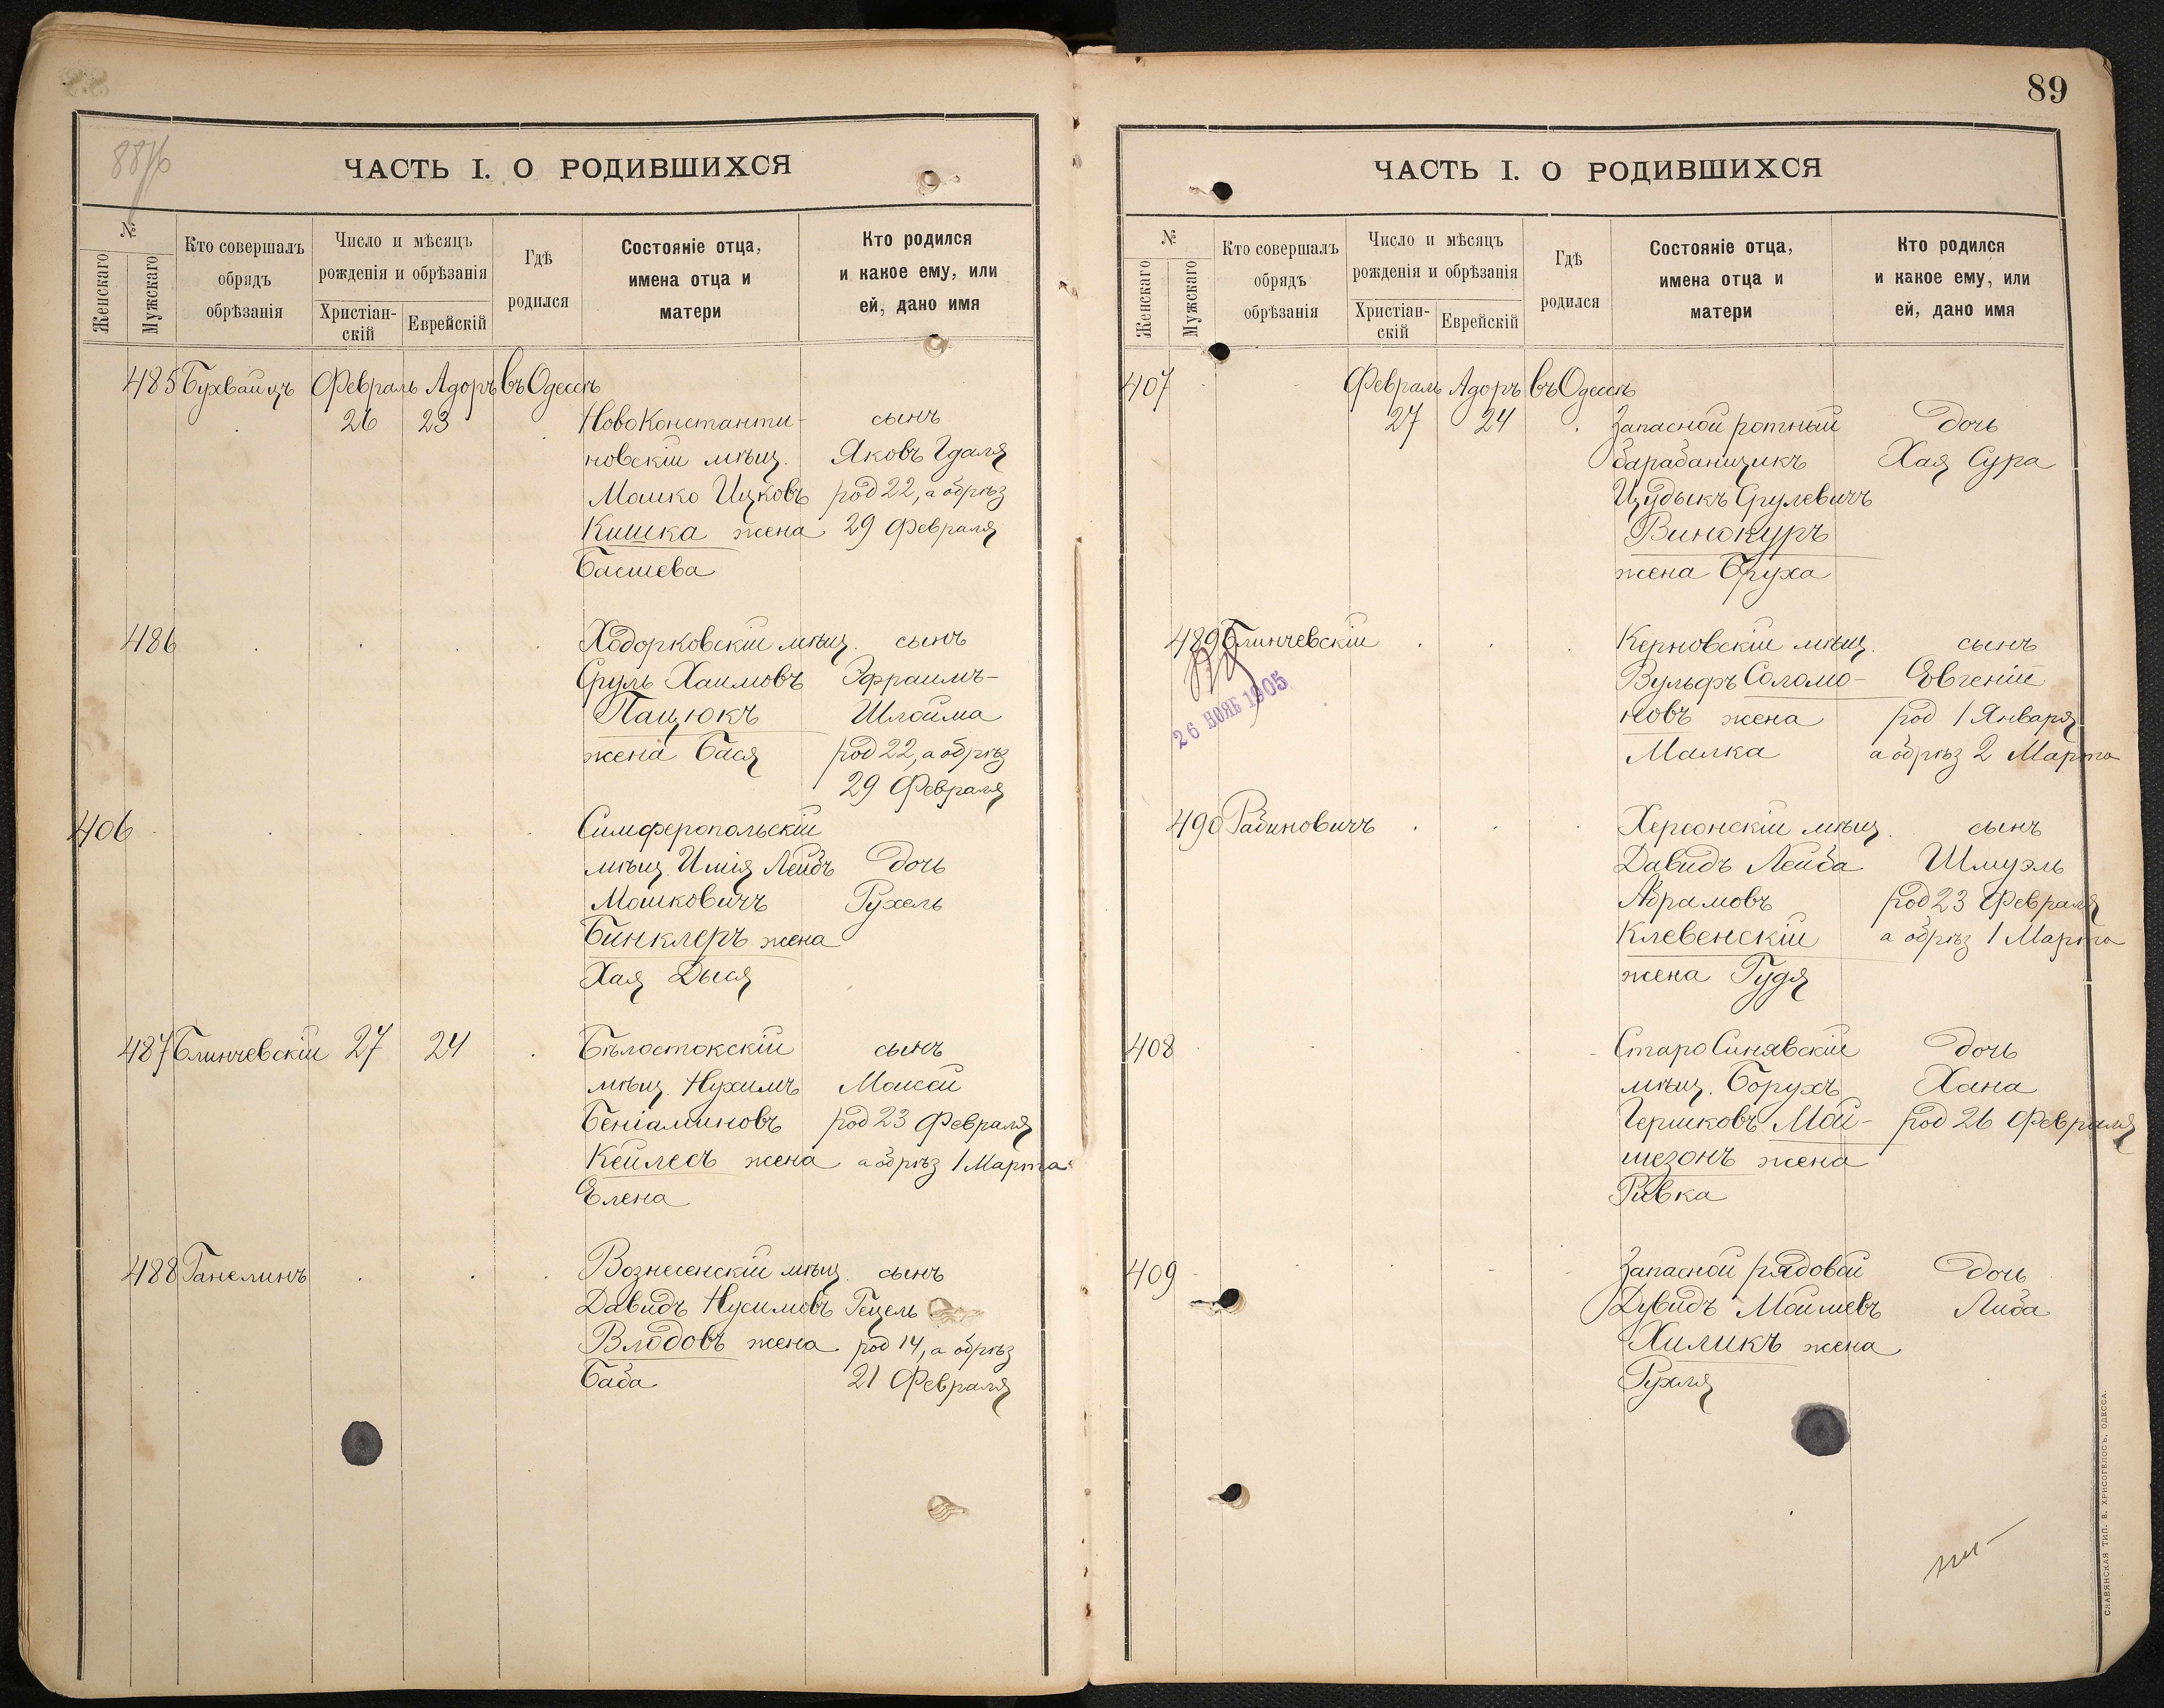 88 1/6
ЧАСТЬ I. О РОДИВШИХСЯ
№
Женскаго
Мужскаго
Кто совершалъ
обрядъ
обрѣзанія
Число и мѣсяцъ
рожденія и обрѣзанія
Христіан-
скій
Еврейскій
Гдѣ
родился
Состояніе отца,
имена отца и
матери
Кто родился
и какое ему, или
ей, дано имя
485 Бухвайцъ Февраль Адоръ въ Одессѣ
26 23 НовоКонстанти- сынъ
новскій мѣщ. Яковъ Гдаля
Мошко Ицковъ род 22, а обрѣз
Кишка жена 29 Февраля
Басшева
486 Ходорковскій мѣщ. сынъ
Сруль Хаимовъ Эфраимъ-
Пацюкъ Шлойма
жена Бася род 22, а обрѣз
29 Февраля
406 Симферопольскій
мѣщ. Лейбъ дочь
Мошковичъ Рухель
Бинклеръ жена
Хая Дыся
487 Блинчевскій 27 24 Бѣлостокскій сынъ
мѣщ. Нухимъ Моисей
Беніаминовъ род 23 Февраля
Кейлесъ жена а обрѣз 1 Марта
Елена
488 Ганелинъ Вознесенскій мѣщ. сынъ
Давидъ Нусимовъ Гецель
Влодовъ жена род 14, а обрѣз
Баба 21 Февраля
89
ЧАСТЬ I. О РОДИВШИХСЯ
№
Женскаго
Мужскаго
Кто совершалъ
обрядъ
обрѣзанія
Число и мѣсяцъ
рожденія и обрѣзанія
Христіан-
скій
Еврейскій
Гдѣ
родился
Состояніе отца,
имена отца и
матери
Кто родился
и какое ему, или
ей, дано имя
407 Февраль Адоръ въ Одессѣ
27 24 Запасной ротный дочь
барабанщикъ Хая Сура
Цудыкъ Срулевичъ
Винокуръ
жена Бруха
489 Блинчевскій Керновскій мѣщ. сынъ
Вульфъ Соломо- Евгеній
новъ жена род 1 Января
Малка а обрѣз 2 Марта
26 НОЯБ 1905
490 Рабиновичъ Херсонскій мѣщ. сынъ
Давидъ Лейба Шмуэль
Абрамовъ род 23 Февраля
Клевенскій а обрѣз 1 Марта
жена Гудя
408 СтароСинявскій дочь
мѣщ. Борухъ Хана
Гершковъ Мой- род 26 Февраля
шезонъ жена
Ривка
409 Запасной рядовой дочь
Дувидъ Мошиевъ Либа
Хиликъ жена
Рухля
СЛАВЯНСКАЯ ТИП. Е. ХРИСОГЕЛОСЪ, ОДЕССА.